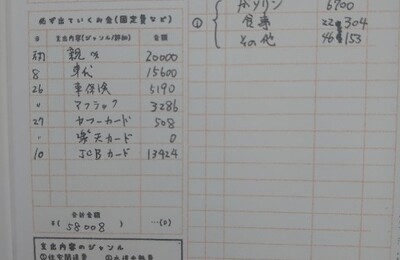 必ず出ていくお金(固定費など)
日 支出内容(ジャンル/詳細) 金額
初 親へ 20000
8 車代 15600
26 車保険 5190
〃 アフラック 3286
27 ヤフーカード 508
〃 楽天カード 0
10 JCBカード 13424
合計金額
¥(58008) …(D)
支出内容のジャンル
ガソリン 6700
① 食事 22,304
その他 46,153